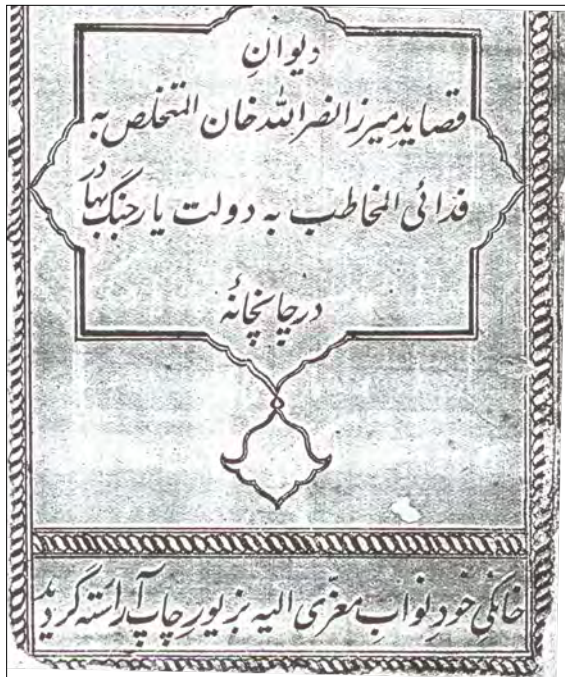 دیوانِ
قصایدِ میرزا نصراللّٰه خان المتخلص به
فدائی المخاطب به دولت یار جنگ بهادر
در چاپخانهٔ
خانگی خود نواب معزّی الیه بزیورِ چاپ آراسته گردید